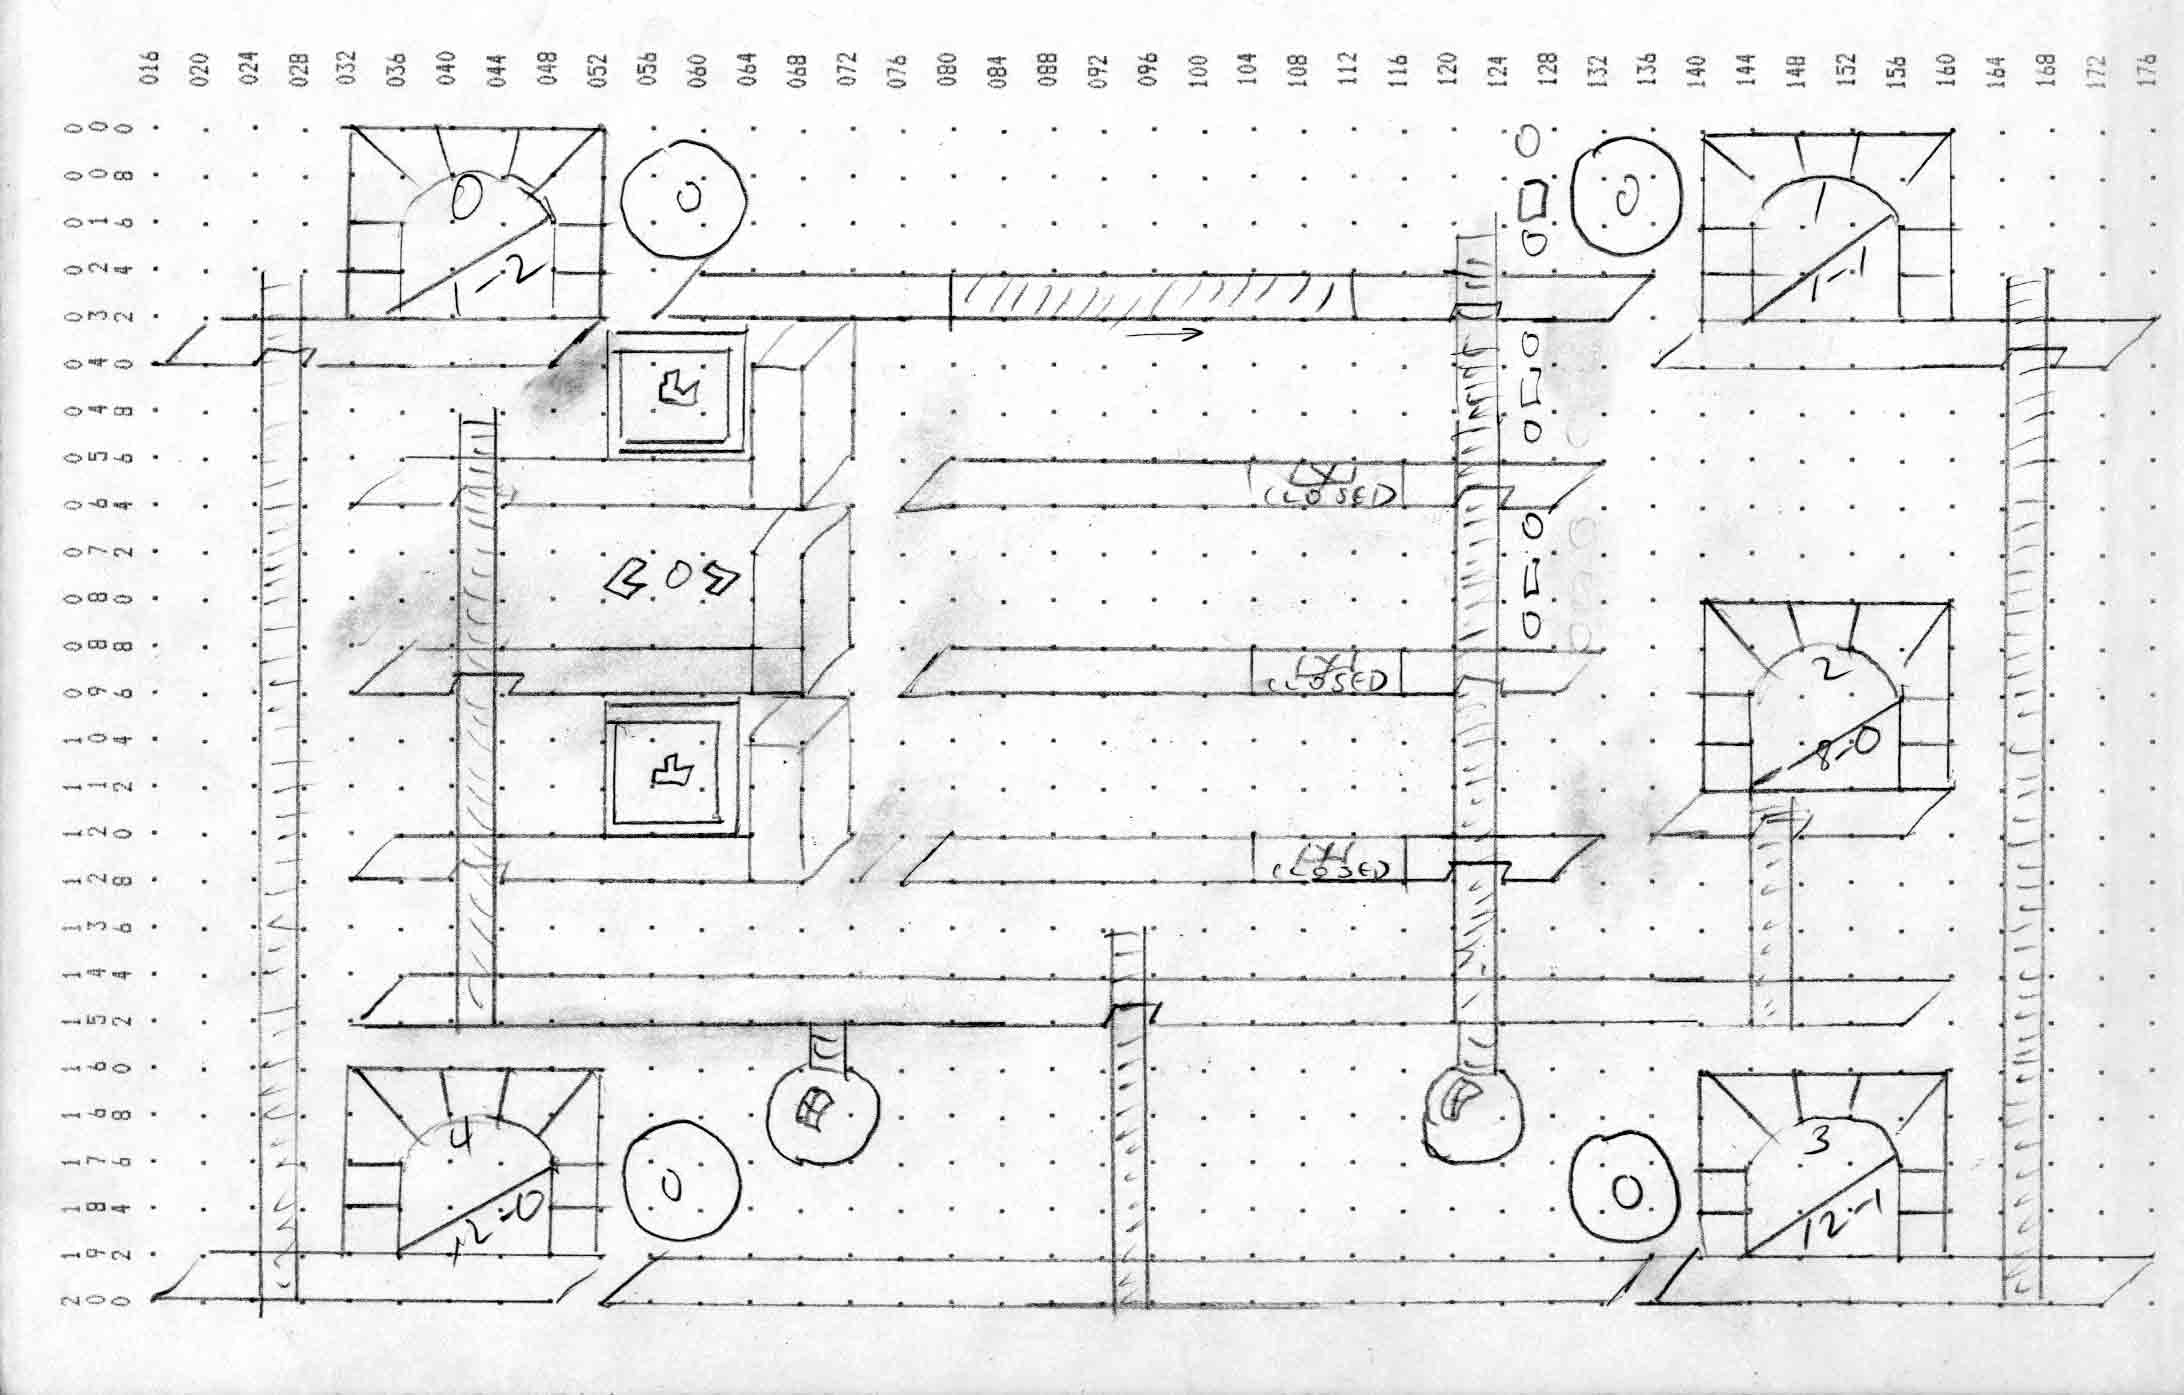 016 020 024 028 032 036 040 044 048 052 056 060 064 068 072 076 080 084 088 092 096 100 104 108 112 116 120 124 128 132 136 140 144 148 152 156 160 164 168 172 176
000
008
016
024
032
040
048
056
064
072
080
088
096
104
112
120
128
136
144
152
160
168
176
184
192
200
0
1-2
0
0
1
1-1
CLOSED
CLOSED
2
8-0
CLOSED
4
12-0
0
0
3
12-1